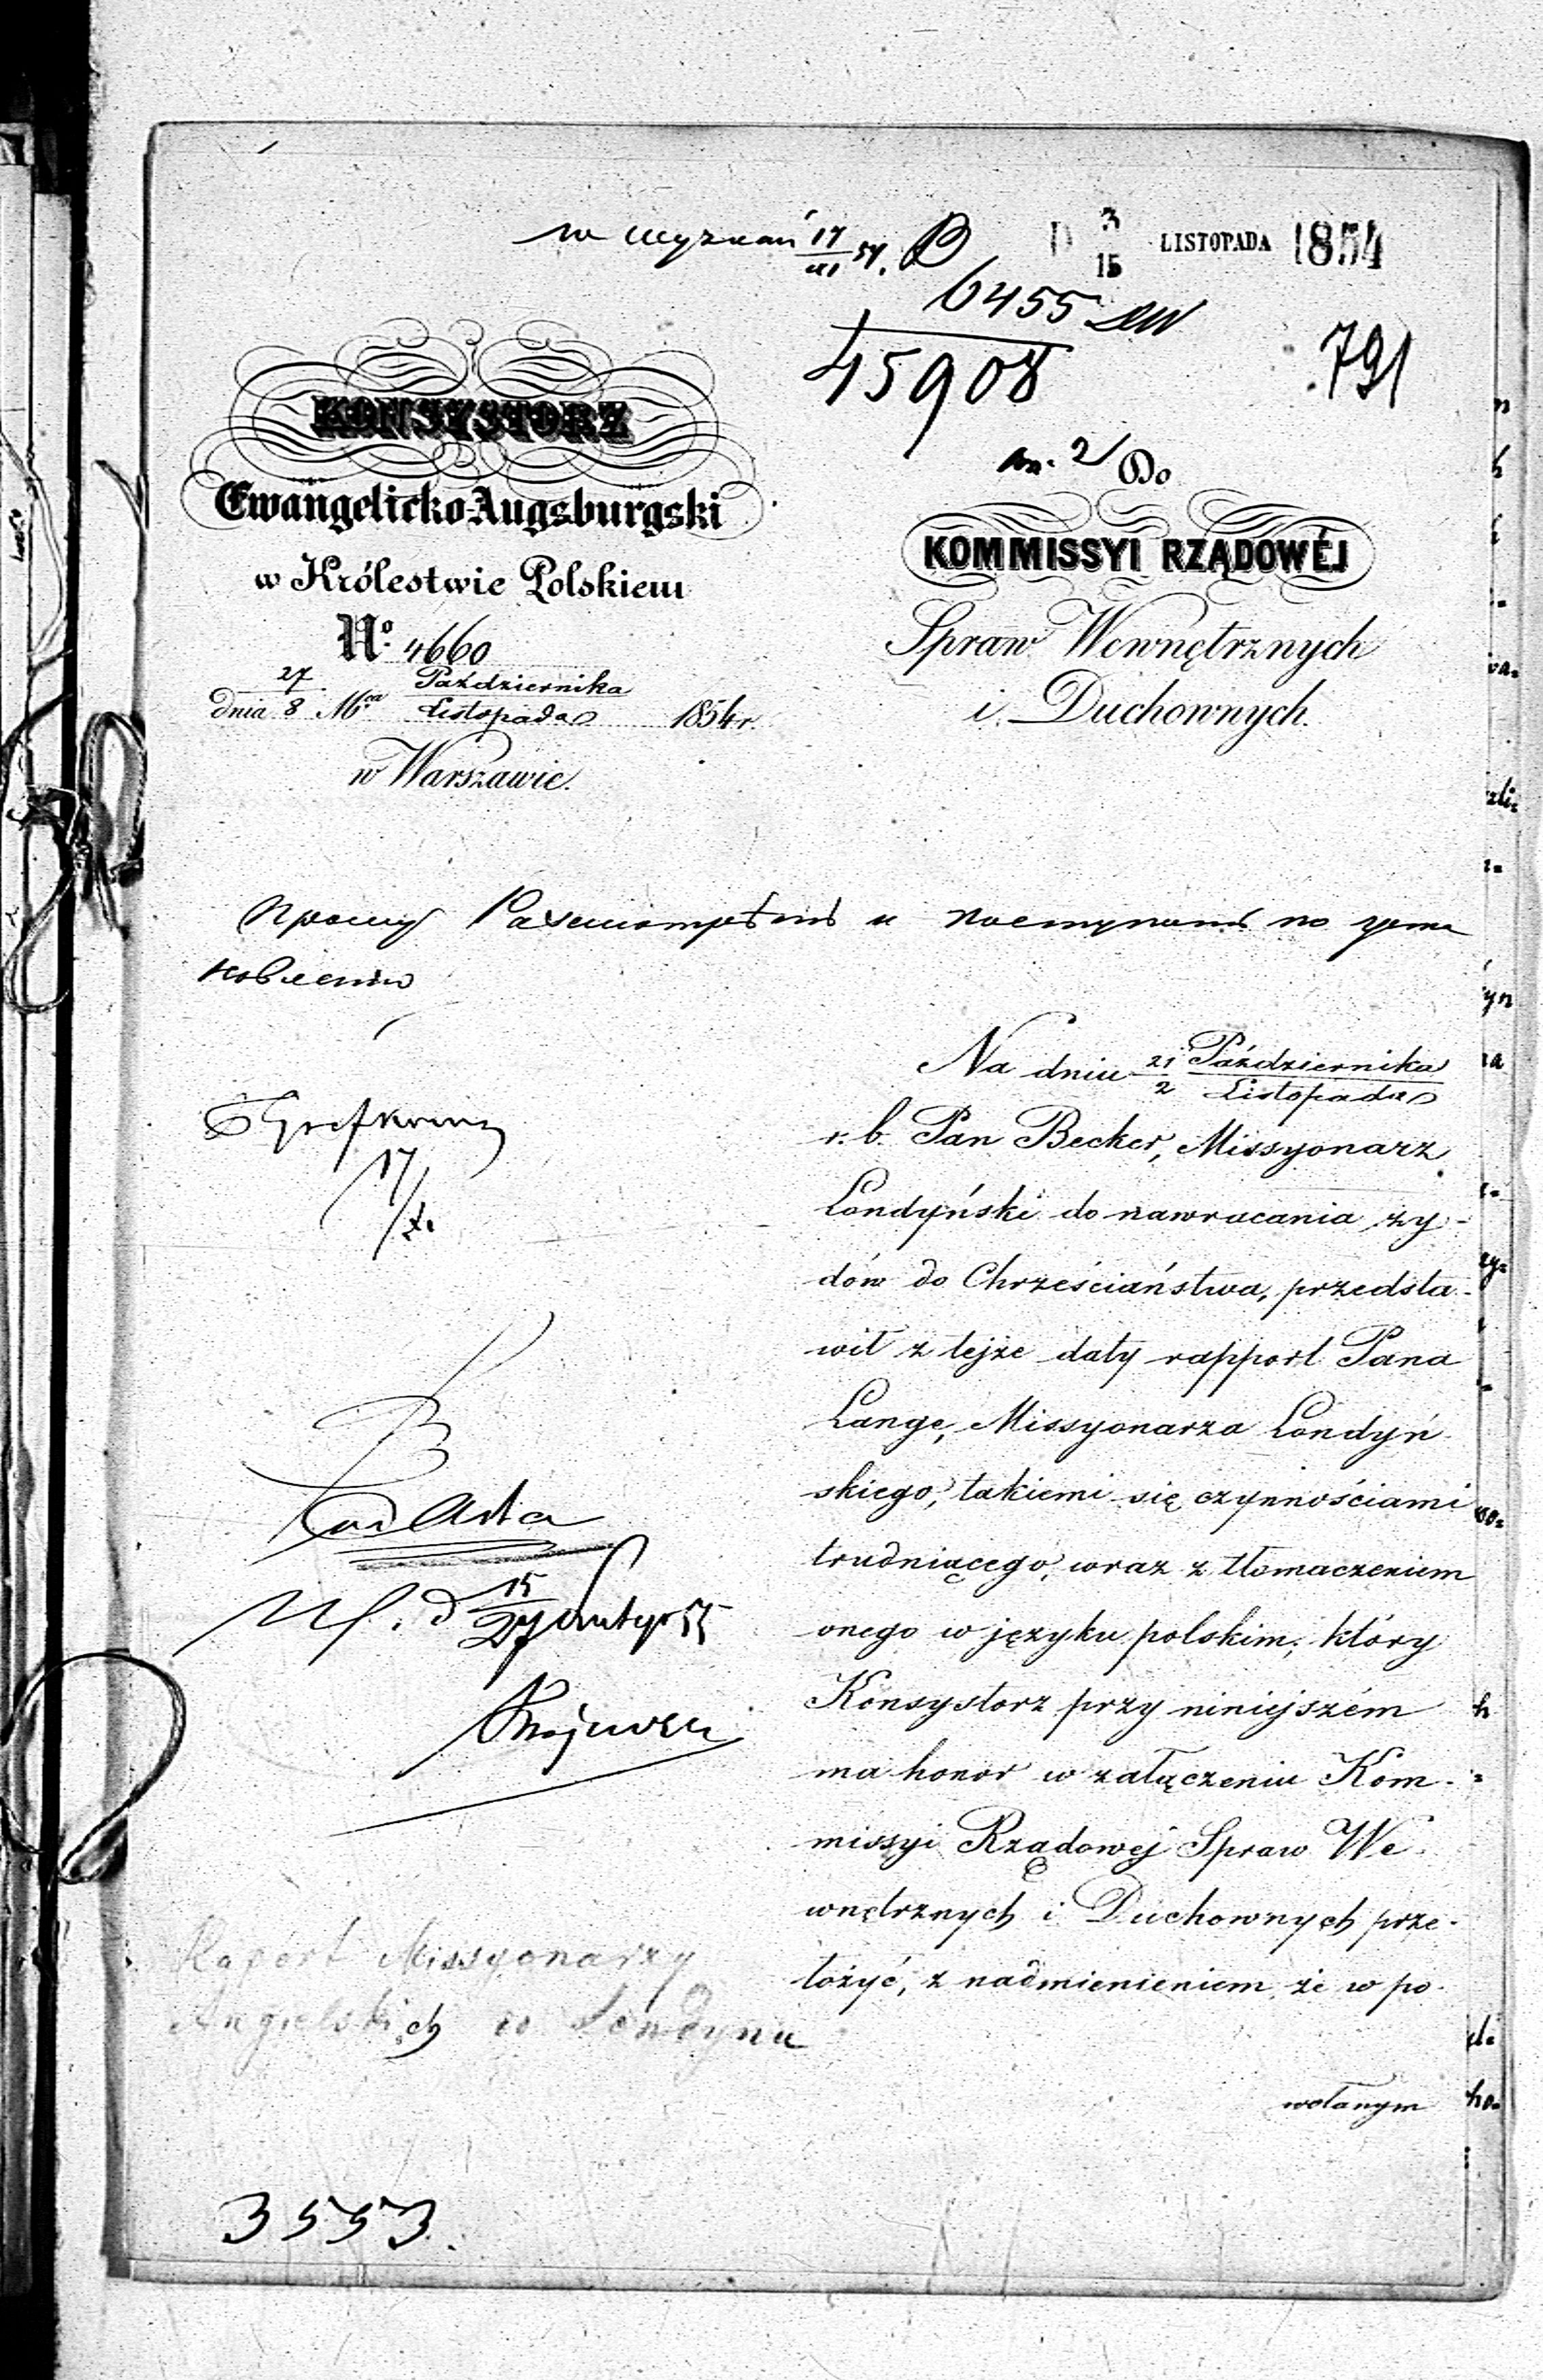 w Wyznań 17/XI 54. B
D 3/15 LISTOPADA 1854
6455
45908
791
KONSYSTORZ
Ewangelicko-Augsburgski
w Królestwie Polskiem
No. 4660
dnia 27/8 Mca Października/Listopada 1854 r.
w Warszawie.
2 Do
KOMMISSYI RZĄDOWÉJ
Spraw Wewnętrznych
i Duchownych.
Прошу Разсмотреть и поступить по уста
новленію
17/XI
Na dniu 21/2 Października/Listopada
r. b. Pan Becker, Missyonarz
Londyński do nawracania ży-
dów do Chrześciaństwa, przedsta-
wił z tejże daty rapport Pana
Lange, Missyonarza Londyń-
skiego, takiemi się czynnościami
trudniącego, wraz z tłomaczeniem
onego w języku polskim, który
Konsystorz przy niniejszém
ma honor w załączeniu Kom-
missyi Rządowej Spraw We-
wnętrznych i Duchownych prze-
łożyć, z nadmienieniem, że w po-
wołanym
ad Acta
d 15/27 Lutego 55
Raport Missyonarzy
Angielskich w Londynu
3553.